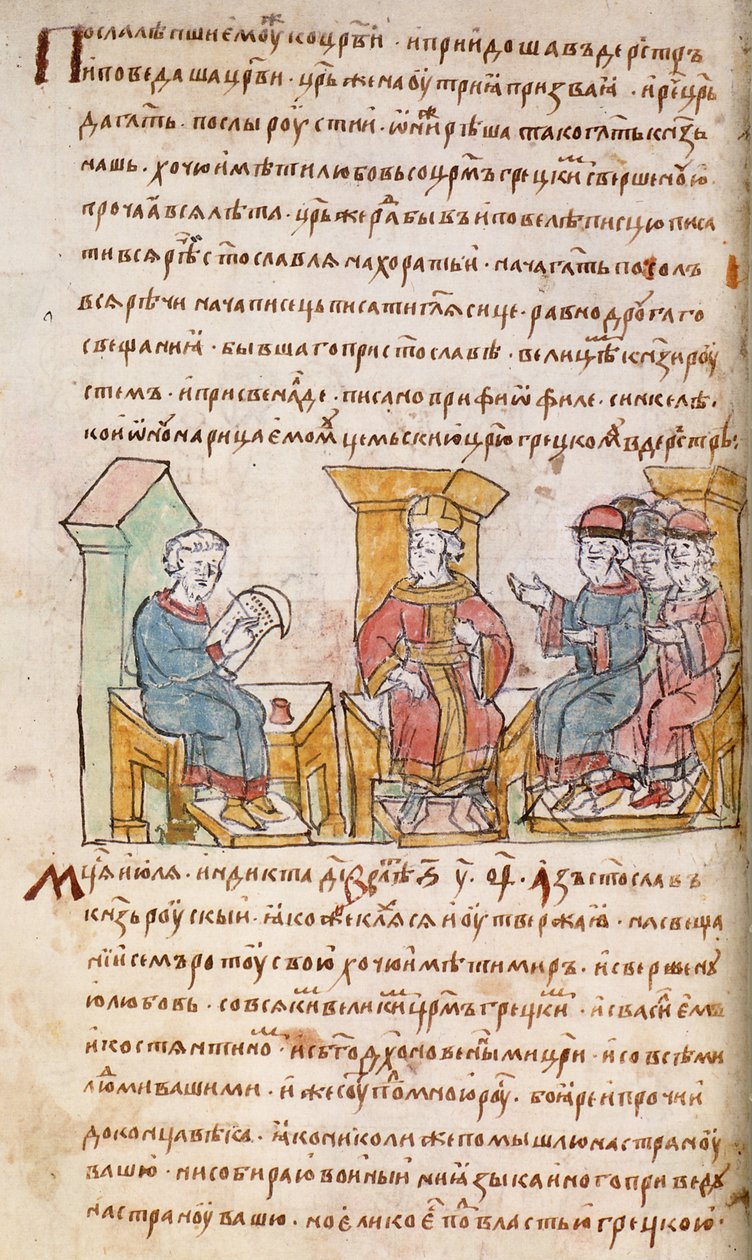 Послалѣпшиемоуж коцр҃ви · ипрїидошавъдерьстръ
Иповедашацр҃ви · цр҃ьженаоутриꙗпризваꙗ · ирече цр҃ь
даглт҃ь · послы роустии · ѡниже рѣша тако глт҃ь кнз҃ь
нашь · хочю имѣти любовь со црм҃ъ грецким свершеноую
прочаꙗ вся лѣта · цр҃ь же рад бывъ и повелѣ писцю писа
ти вся рѣчи ст҃ославля на хоратьи · нача глт҃ь посолъ
вся рѣчи нача писець писати гл҃я сице · равно дроугаго
свещаниꙗ · бывшаго при ст҃ославѣ · велицѣм кнз҃и роу
стемъ · и при свеналде · писано при фиѡфиле · синкелѣ ·
ко иѡноу нарицаемомоу цемьскию цр҃ю грецкомоу в дерьстрѣ :
Мц҃я июля · индикта д҃і в лѣт ҂ѕ҃ у҃ ч҃ · Азъ ст҃ославъ
кнз҃ь роускыи · ꙗкоже кляхся и оутвержаю · на свеща
нїи семъ ротоу свою хочю имѣти миръ · и свершеноу
ю любовь · со всяким великим црм҃ъ грецким · и с васи҃лемъ
и костянтином · и с б҃годх҃оновеными цр҃и · и со всѣми
людми вашими · и же соуть подо мною роус · боꙗре и прочии
до конца вѣка · ꙗко николиже помышлю на страноу
вашю · ни собираю вои ныи ни ꙗзыка иного приведоу
на страноу вашю · но елико есть под властью грецкою ·